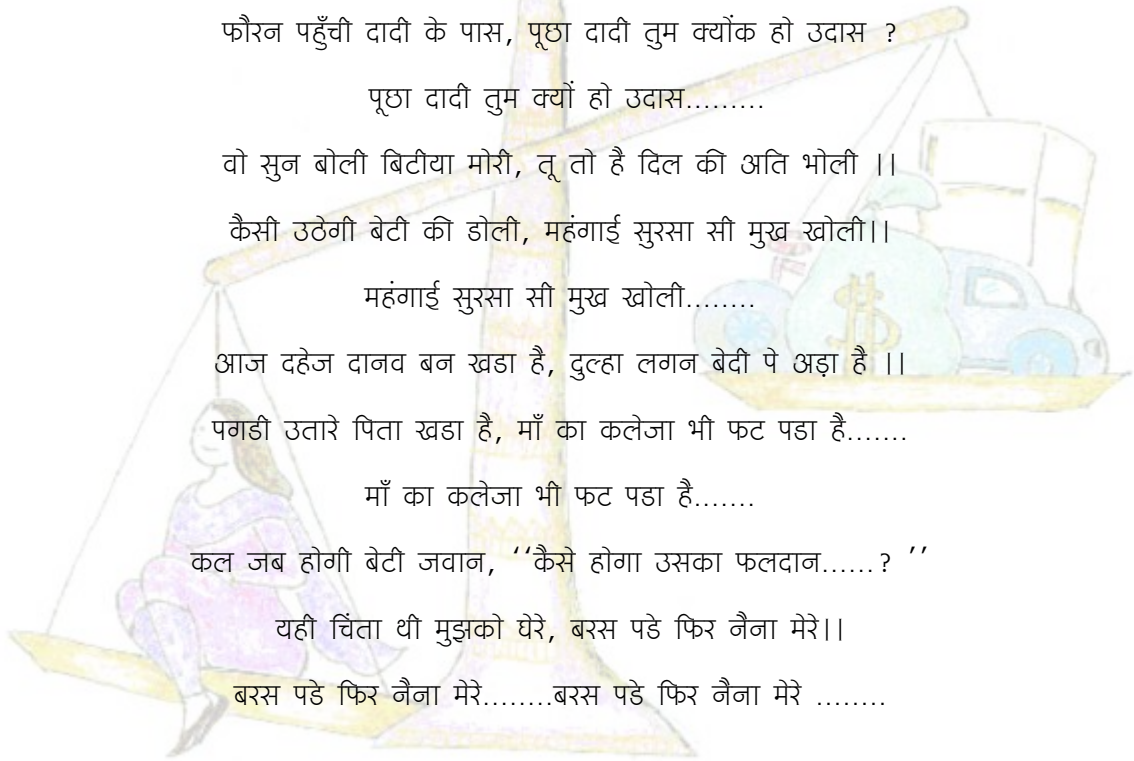 फौरन पहुँची दादी के पास, पूछा दादी तुम क्योंक हो उदास ?
पूछा दादी तुम क्यों हो उदास.........
वो सुन बोली बिटीया मोरी, तू तो है दिल की अति भोली ।।
कैसी उठेगी बेटी की डोली, महंगाई सुरसा सी मुख खोली।।
महंगाई सुरसा सी मुख खोली........
आज दहेज दानव बन खडा है, दुल्हा लगन बेदी पे अड़ा है ।।
पगडी उतारे पिता खडा है, माँ का कलेजा भी फट पडा है.......
माँ का कलेजा भी फट पडा है.......
कल जब होगी बेटी जवान, ‘‘कैसे होगा उसका फलदान......? ’’
यही चिंता थी मुझको घेरे, बरस पडे फिर नैना मेरे।।
बरस पडे फिर नैना मेरे........बरस पडे फिर नैना मेरे ........